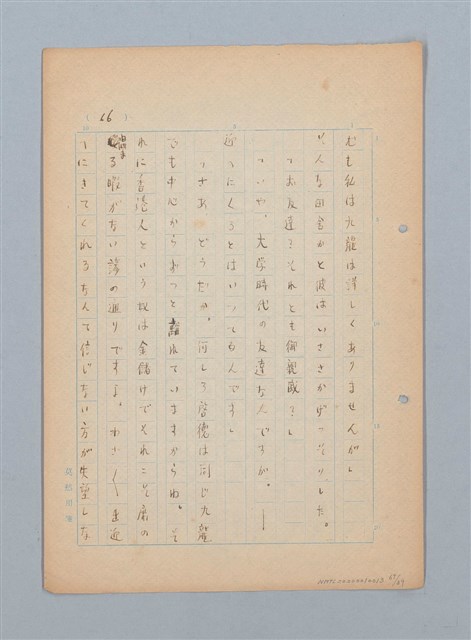 でも私は九龍は詳しくありませんが」
そんな田舎かと彼はいささかげっそりした。
「お友達？それとも御親戚？」
「いや、大学時代の友達なんですが。――
迎いにくるとはいってるんです」
「さあ、どうだか。何しろ啓徳は同じ九龍
でも中心からずっと離れていますからね。そ
れに香港人という奴は金儲けでそれこそ席の
温まる暇がない諺の通りですよ。わざ〱迎
いにきてくれるなんて信じない方が失望しな